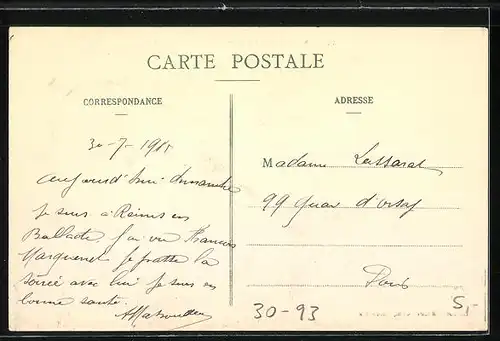 CARTE POSTALE
CORRESPONDANCE
30-7-1911
aujourd'hui dimanche
Je suis à Reims en
Ballade. J'ai vu François
Je profite la
soirée avec lui Je suis en
bonne santé.
ADRESSE
Madame Lassarat
99 quai d'orsay
Paris
30-93
5,-